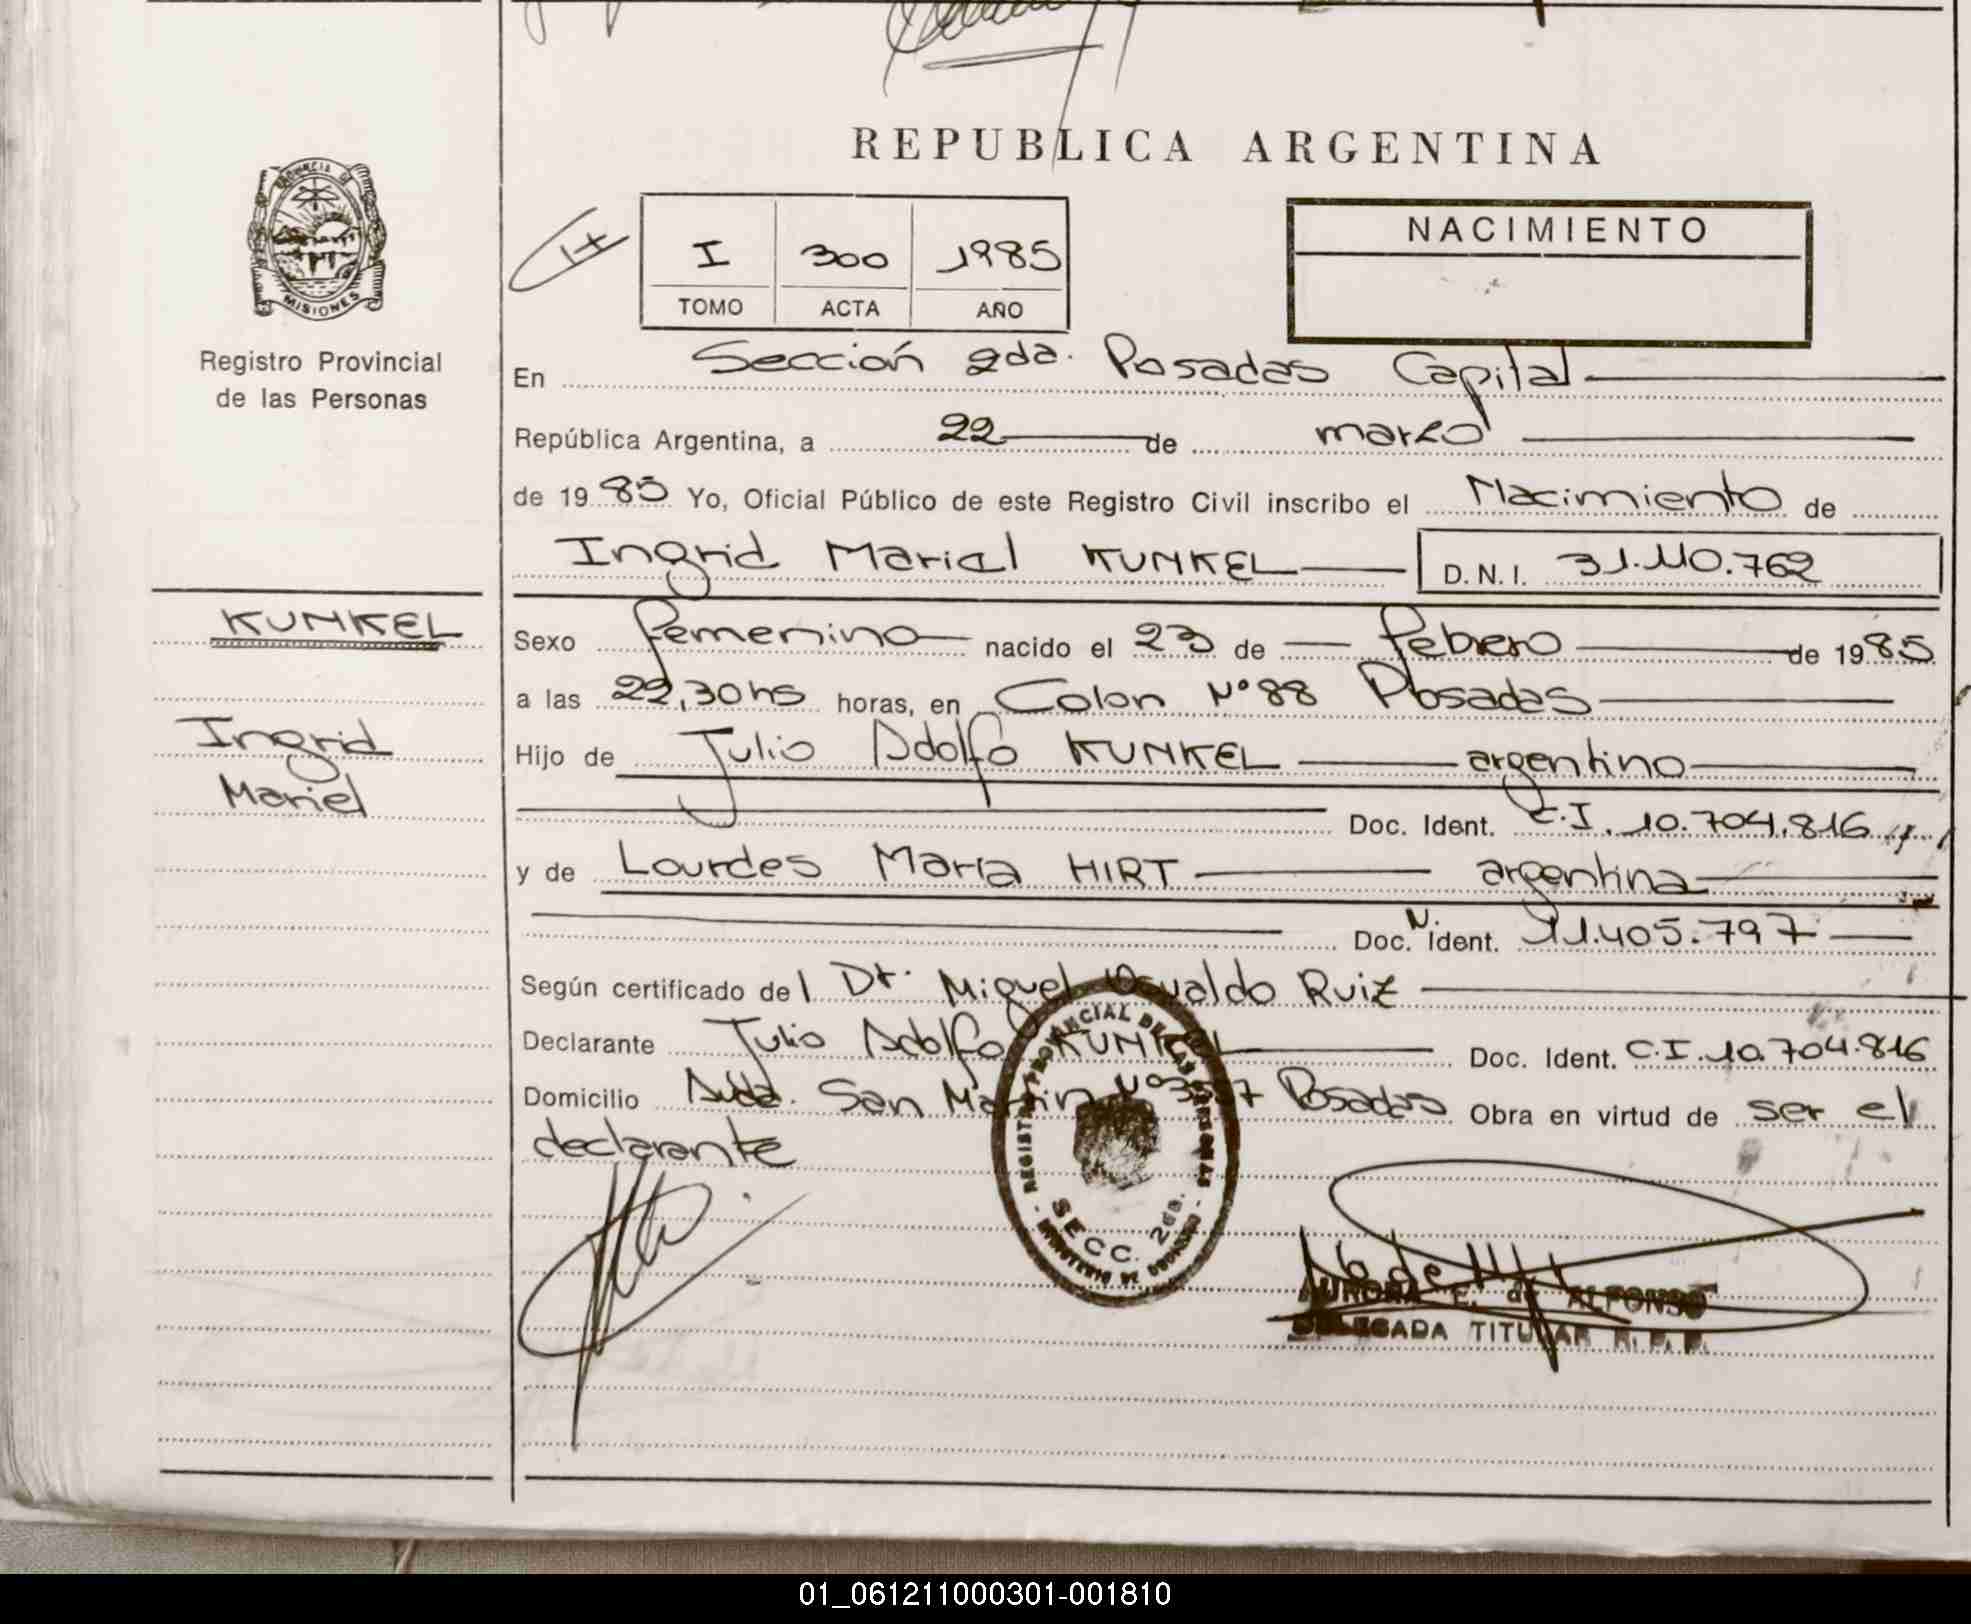 REPUBLICA ARGENTINA
PROVINCIA DE
MISIONES
Registro Provincial
de las Personas
I 300 1985
TOMO ACTA AÑO
NACIMIENTO
En Sección 2da. Posadas Capital
República Argentina, a 22 de marzo
de 1985 Yo, Oficial Público de este Registro Civil inscribo el Nacimiento de
Ingrid Mariel KUNKEL D.N.I. 31.110.762
KUNKEL
Ingrid
Mariel
Sexo femenino nacido el 23 de febrero de 1985
a las 22,30 hs horas, en Colon N° 88 Posadas
Hijo de Julio Adolfo KUNKEL argentino
Doc. Ident. C.I. 10.704.816
y de Lourdes María HIRT argentina
Doc. N. Ident. 11.405.797
Según certificado del Dr. Miguel Osvaldo Ruiz
Declarante Julio Adolfo KUNKEL Doc. Ident. C.I. 10.704.816
Domicilio Avda. San Martin Posadas Obra en virtud de ser el
declarante
REGISTRO PROVINCIAL DE LAS PERSONAS
SECC. 2da.
MINISTERIO DE GOBIERNO
AURORA E. de ALFONSO
DELEGADA TITULAR R. P. P.
01_061211000301-001810